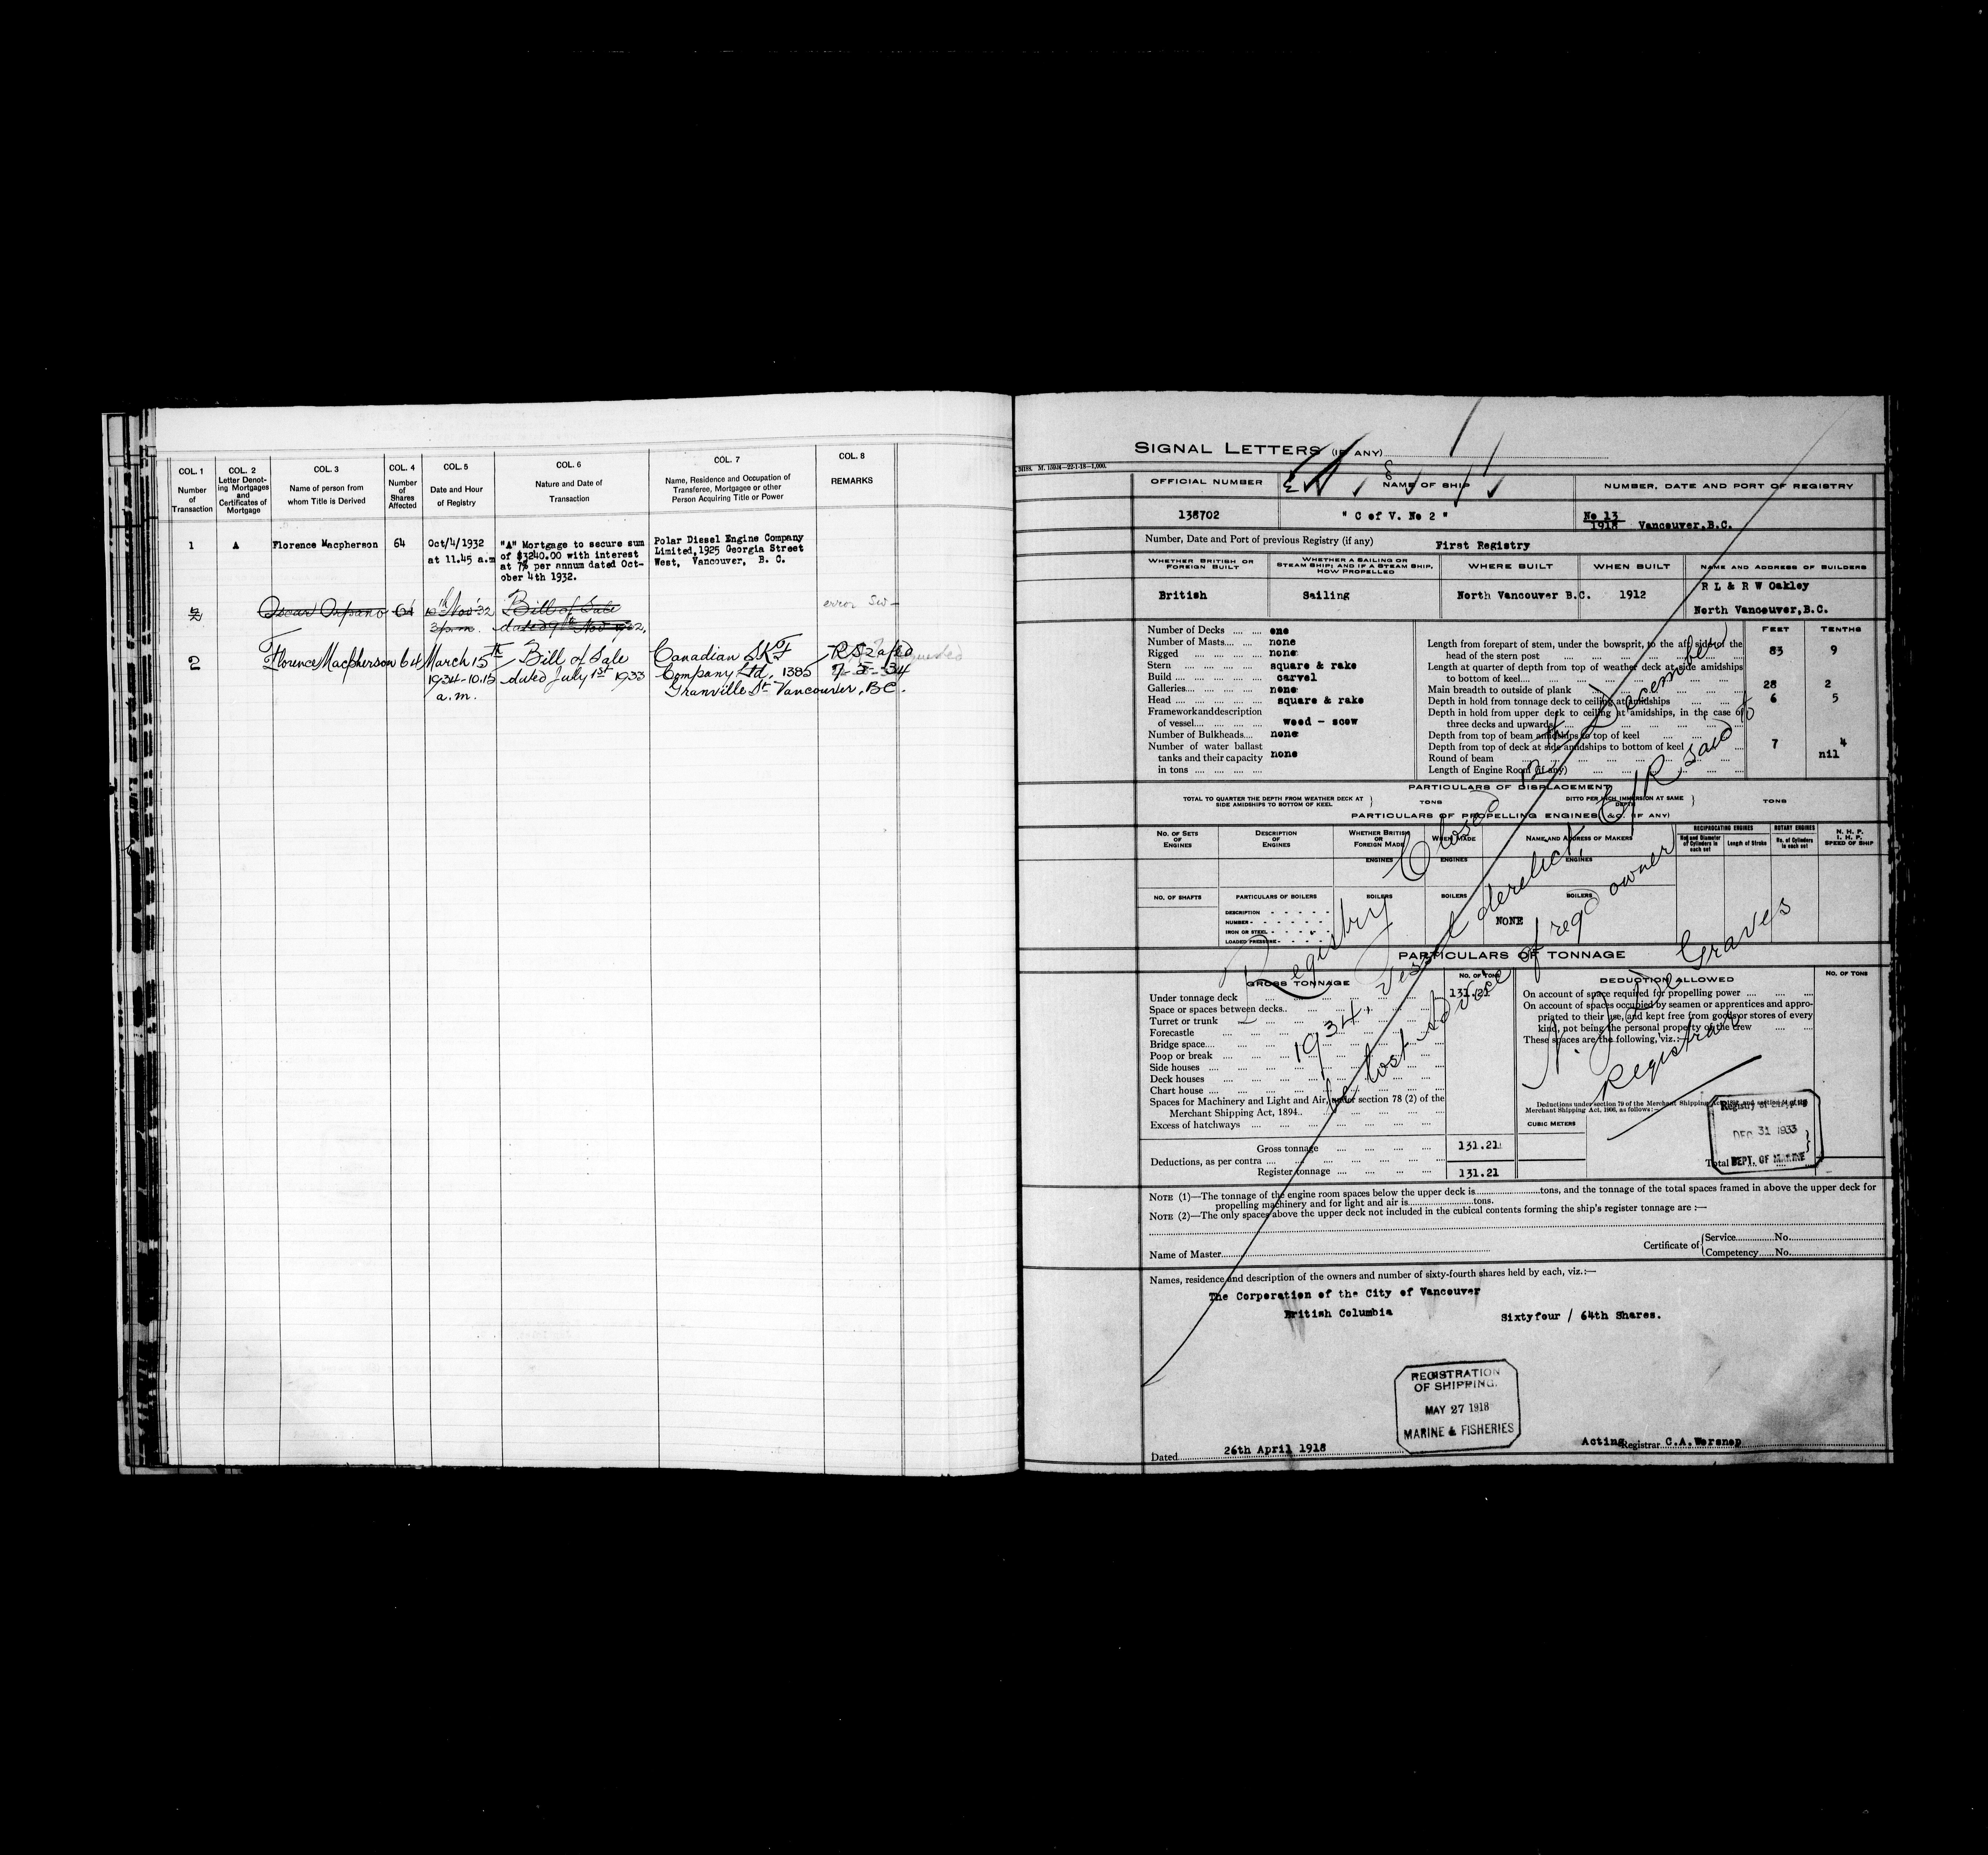 COL. 1
Number
of
Transaction
COL. 2
Letter Denot-
ing Mortgages
and
Certificates of
Mortgage
COL. 3
Name of person from
whom Title is Derived
COL. 4
Number
of
Shares
Affected
COL. 5
Date and Hour
of Registry
COL. 6
Nature and Date of
Transaction
COL. 7
Name, Residence and Occupation of
Transferee, Mortgagee or other
Person Acquiring Title or Power
COL. 8
REMARKS
1
A
Florence Macpherson
64
Oct/4/1932
at 11.45 a.m
"A" Mortgage to secure sum
of $3240.00 with interest
at 7% per annum dated Oct-
ober 4th 1932.
Polar Diesel Engine Company
Limited, 1925 Georgia Street
West, Vancouver, B. C.
2
64
10th Nov '32
3 p.m.
Bill of Sale
dated 9th Nov 1932,
error
2
Florence Macpherson
64
March 15th
1934 - 10.15
a.m.
Bill of Sale
dated July 1st 1933
Canadian SKF
Company Ltd, 1385
Granville St Vancouver, B.C.
SIGNAL LETTERS (IF ANY)
MISS. M. 15934—22-1-18—1,000.
OFFICIAL NUMBER
NAME OF SHIP
NUMBER, DATE AND PORT OF REGISTRY
138702
" C of V. No 2 "
No 13
1918 Vancouver, B.C.
Number, Date and Port of previous Registry (if any)
First Registry
WHETHER BRITISH OR
FOREIGN BUILT
WHETHER A SAILING OR
STEAM SHIP; AND IF A STEAM SHIP,
HOW PROPELLED
WHERE BUILT
WHEN BUILT
NAME AND ADDRESS OF BUILDERS
British
Sailing
North Vancouver B.C.
1912
R L & R W Oakley
North Vancouver, B.C.
Number of Decks one
Number of Masts none
Rigged none
Stern square & rake
Build carvel
Galleries none
Head square & rake
Framework and description
of vessel wood - scow
Number of Bulkheads none
Number of water ballast
tanks and their capacity
in tons none
FEET
TENTHS
Length from forepart of stem, under the bowsprit, to the aft side of the
head of the stern post 83 9
Length at quarter of depth from top of weather deck at side amidships
to bottom of keel
Main breadth to outside of plank 28 2
Depth in hold from tonnage deck to ceiling at amidships 6 5
Depth in hold from upper deck to ceiling at amidships, in the case of
three decks and upwards
Depth from top of beam amidships to top of keel
Depth from top of deck at side amidships to bottom of keel 7 4
Round of beam nil
Length of Engine Room (if any)
PARTICULARS OF DISPLACEMENT
TOTAL TO QUARTER THE DEPTH FROM WEATHER DECK AT
SIDE AMIDSHIPS TO BOTTOM OF KEEL
TONS
DITTO PER INCH IMMERSION AT SAME
DEPTH
TONS
PARTICULARS OF PROPELLING ENGINES (&C. IF ANY)
NO. OF SETS
OF
ENGINES
DESCRIPTION
OF
ENGINES
WHETHER BRITISH
OR
FOREIGN MADE
WHEN MADE
NAME AND ADDRESS OF MAKERS
RECIPROCATING ENGINES
No. and Diameter
of Cylinders in
each set
Length of Stroke
ROTARY ENGINES
No. of Cylinders
in each set
N. H. P.
I. H. P.
SPEED OF SHIP
ENGINES
ENGINES
ENGINES
NO. OF SHAFTS
PARTICULARS OF BOILERS
BOILERS
BOILERS
BOILERS
DESCRIPTION
NUMBER
IRON OR STEEL
LOADED PRESSURE
NONE
PARTICULARS OF TONNAGE
GROSS TONNAGE
NO. OF TONS
DEDUCTION ALLOWED
NO. OF TONS
Under tonnage deck 131.21
Space or spaces between decks
Turret or trunk
Forecastle
Bridge space
Poop or break
Side houses
Deck houses
Chart house
Spaces for Machinery and Light and Air, under section 78 (2) of the
Merchant Shipping Act, 1894
Excess of hatchways
Gross tonnage 131.21
Deductions, as per contra
Register tonnage 131.21
On account of space required for propelling power
On account of spaces occupied by seamen or apprentices and appro-
priated to their use, and kept free from goods or stores of every
kind, not being the personal property of the crew
These spaces are the following, viz.:—
Deductions under section 79 of the Merchant Shipping Act, 1894, and section 54 of the
Merchant Shipping Act, 1906, as follows:—
CUBIC METERS
Total
Registry of Shipping
DEC 31 1933
DEPT. OF MARINE
Registry Closed 12th December
1934. Vessel derelict, C/R said to
be lost. Advice of regd owner
Registrar
NOTE (1)—The tonnage of the engine room spaces below the upper deck is tons, and the tonnage of the total spaces framed in above the upper deck for
propelling machinery and for light and air is tons.
NOTE (2)—The only spaces above the upper deck not included in the cubical contents forming the ship's register tonnage are :—
Name of Master
Certificate of
Service No.
Competency No.
Names, residence and description of the owners and number of sixty-fourth shares held by each, viz.:—
The Corporation of the City of Vancouver
British Columbia
Sixtyfour / 64th Shares.
REGISTRATION
OF SHIPPING.
MAY 27 1918
MARINE & FISHERIES
Dated 26th April 1918
Acting Registrar C.A. Worsnop